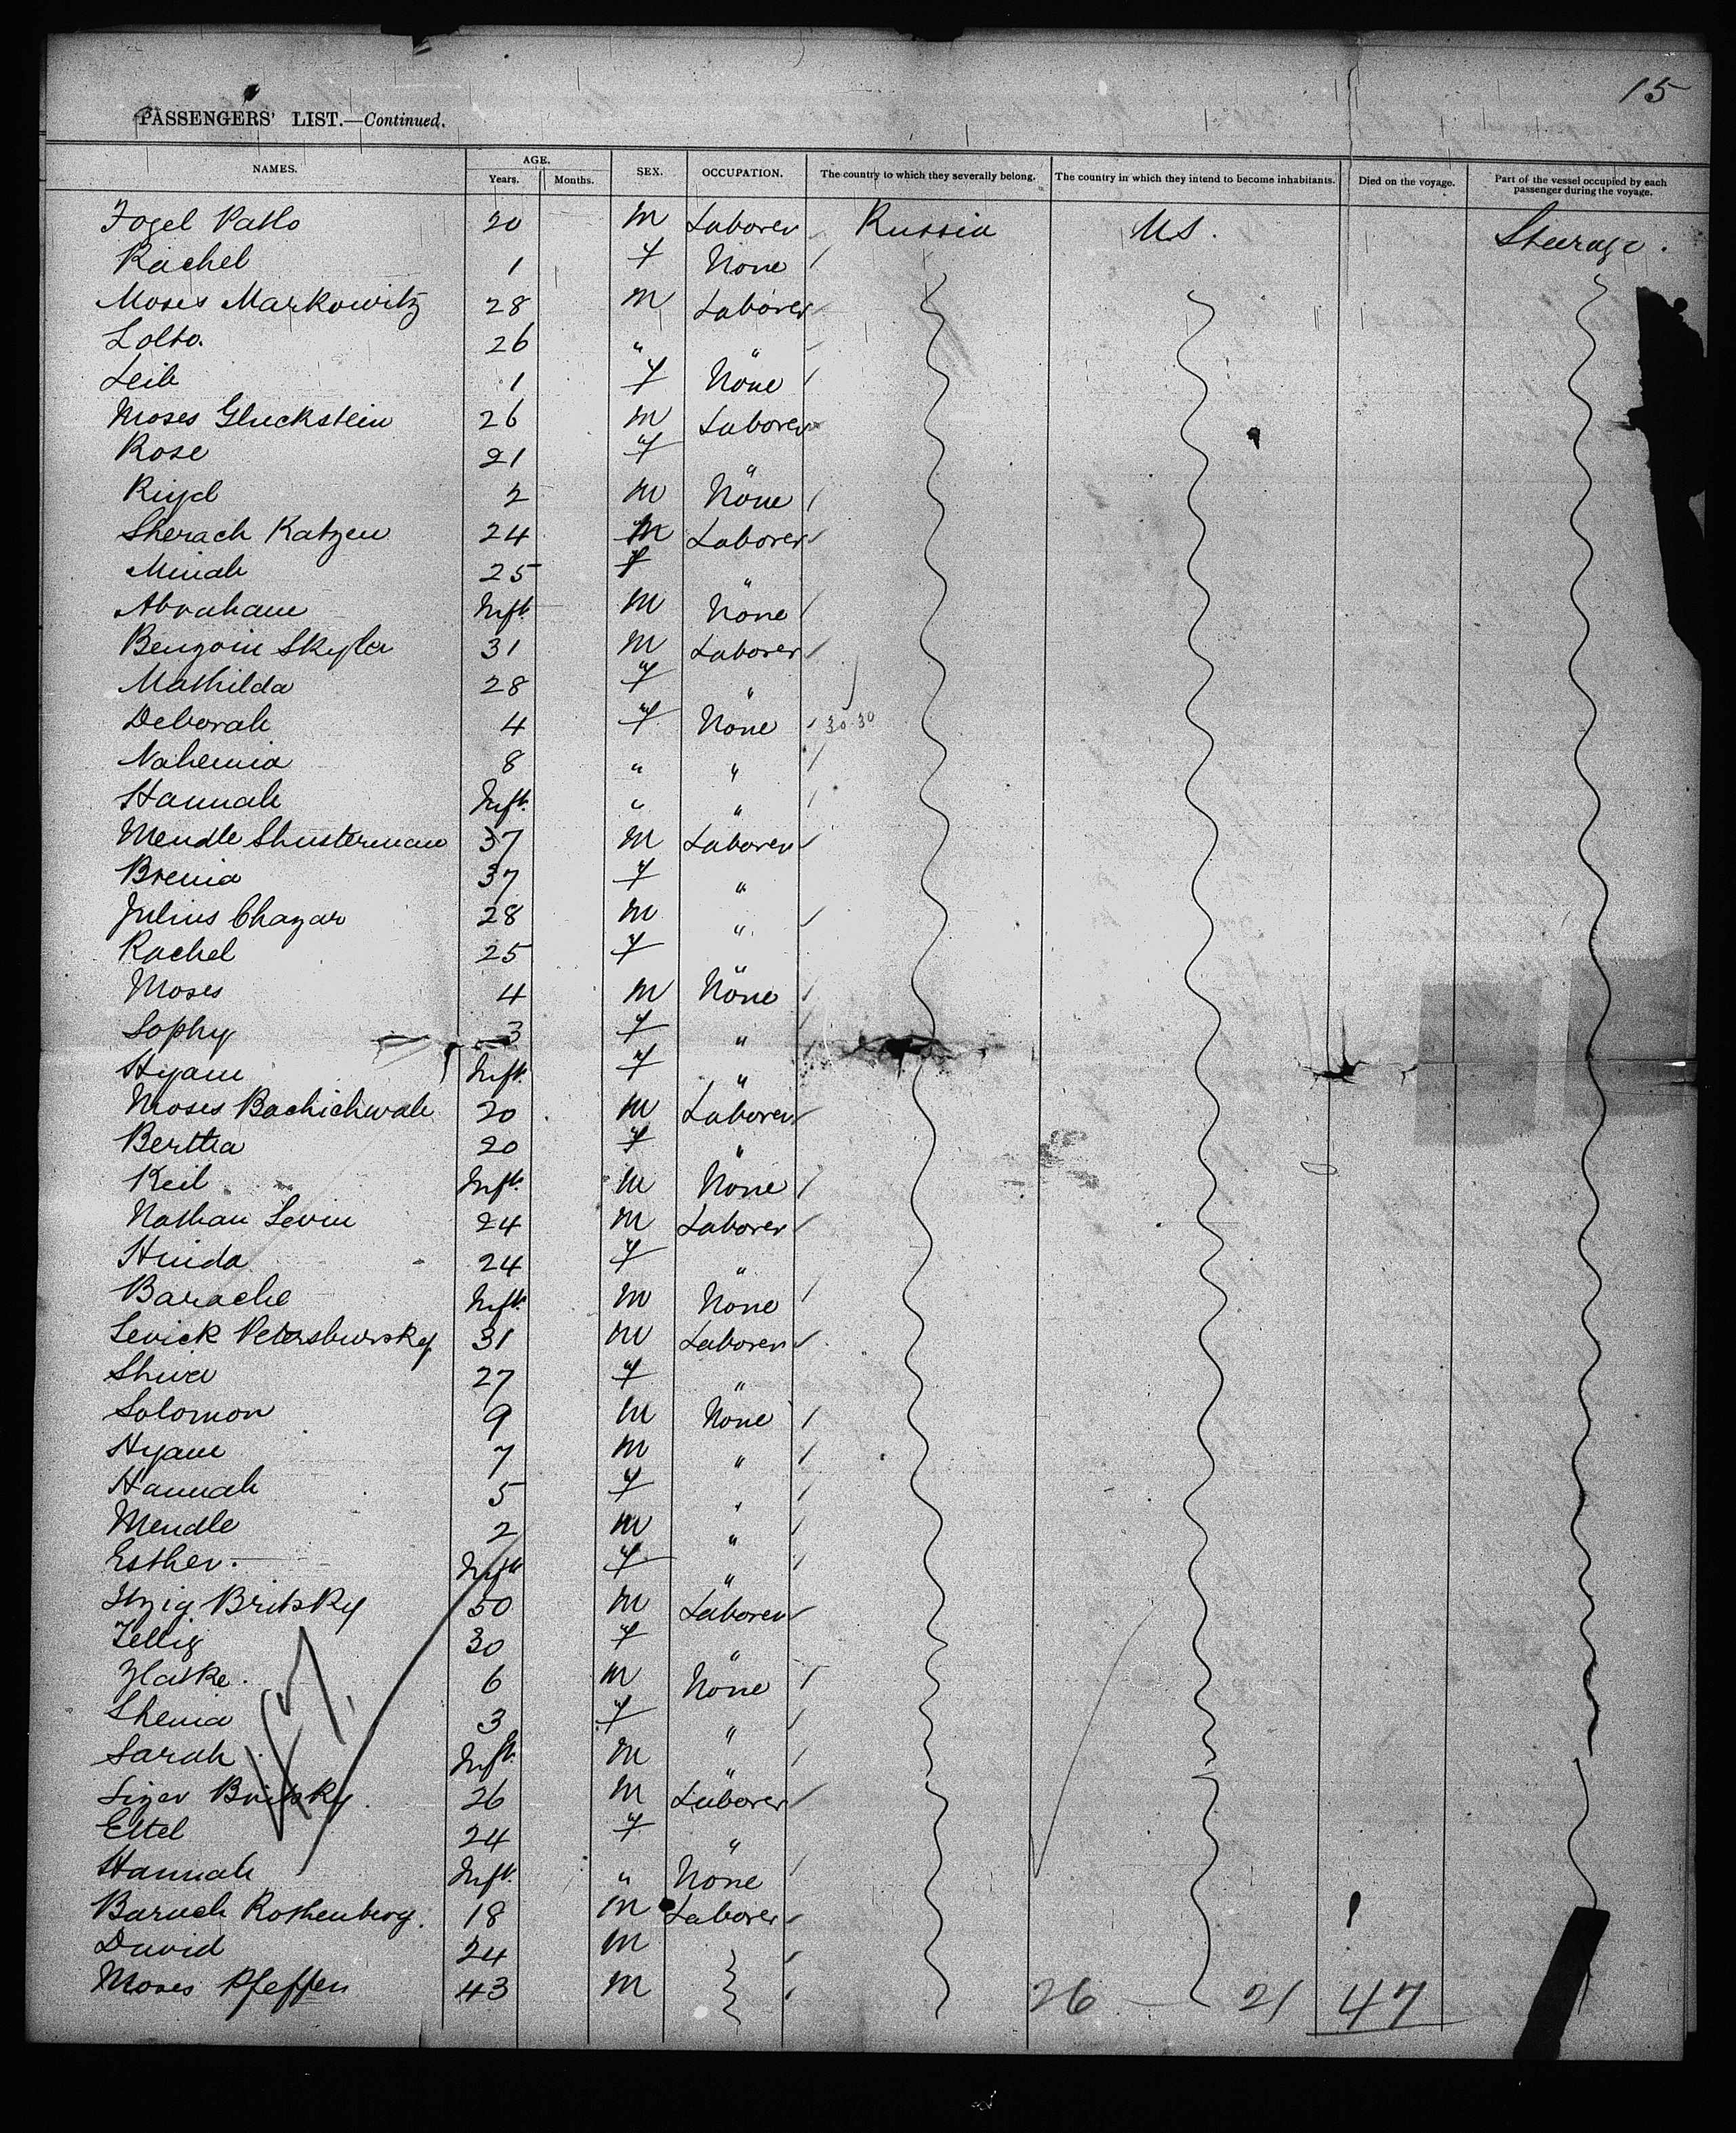 15
PASSENGERS' LIST.—Continued.
NAMES. AGE. Years. Months. SEX. OCCUPATION. The country to which they severally belong. The country in which they intend to become inhabitants. Died on the voyage. Part of the vessel occupied by each passenger during the voyage.
Fogel Patlo 20 M Laborer Russia U.S. Steerage.
Rachel 1 f None
Moses Markowitz 28 M Laborer
Lolto. 26 " "
Leib 1 f None
Moses Gluckstein 26 M Laborer
Rose 21 f "
2 M None
Sherach Katzen 24 M Laborer
Minah 25 f "
Abraham Inft. M None
Benzoin Skyler 31 M Laborer
Mathilda 28 f "
Deborah 4 f None 30 30
Nahemia 8 " "
Hannah Inft. " "
Mendle Shusterman 37 M Laborer
Brenia 37 f "
Julius Chazar 28 M "
Rachel 25 f "
Moses 4 M None
Sophy 3 f "
Hyam Inft. f "
Moses Bachichwah 20 M Laborer
Bertha 20 f "
Keil Inft. M None
Nathan Levin 24 M Laborer
Hinda 24 f "
Barache Inft. M None
Levick Petersbursky 31 M Laborer
Shiva 27 f "
Solomon 9 M None
Hyam 7 M "
Hannah 5 f "
Mendle 2 M "
Esther. Inft f "
Itzig Britsky 50 M Laborer
Zellig 30 f "
Zlatke. 6 M None
Shenia 3 f "
Sarah Inft. M "
Lizer Britsky. 26 M Laborer
Ettel 24 f "
Hannah Inft. " None
Baruch Rothenberg. 18 M Laborer
David 24 M
Moses Pfeffer 43 M
26 — 21 47